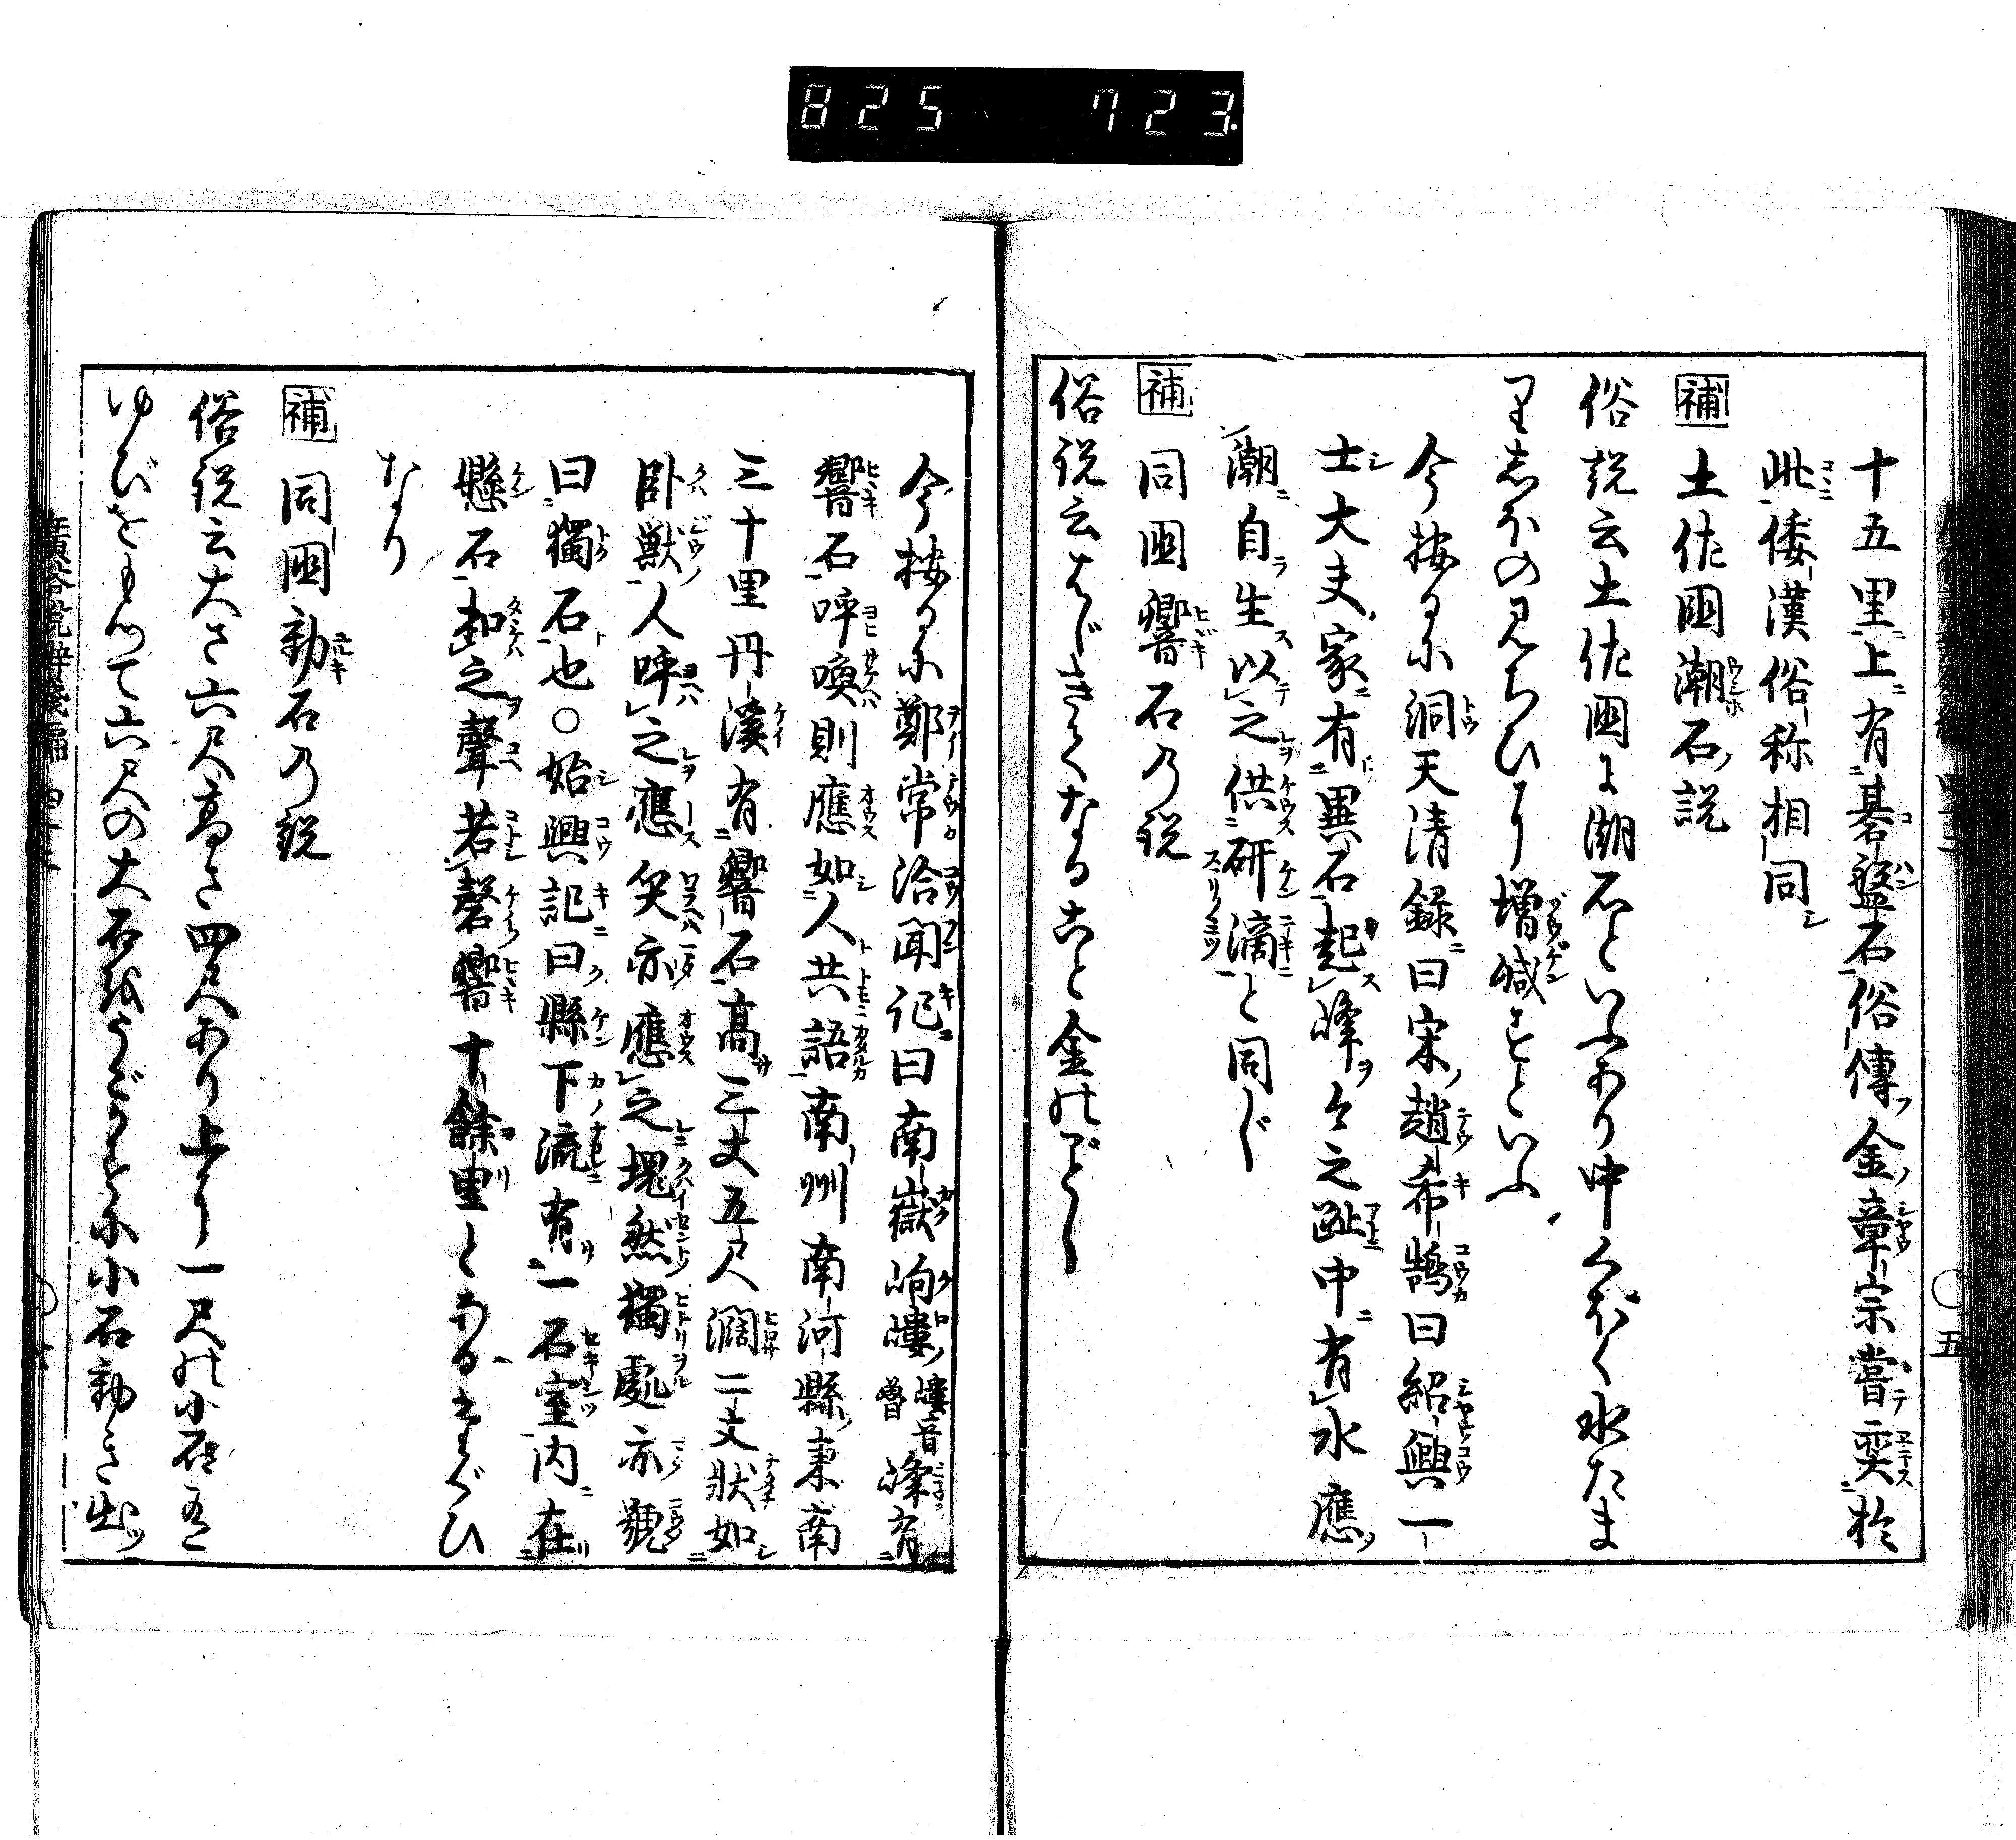 825 723.
十五里上有碁盤石俗傳金章宗嘗奕於
此倭漢俗称相同
補 土佐國潮石説
俗説云土佐國に潮石といふあり中くぼく水たま
りしほのみちひより増减すといふ
今按るに洞天清録曰宋趙希鵠曰紹興一
士大夫家有異石起峰々之趾中有水應
潮自生以之供研滴と同じ
補 同國響石乃説
俗説云はじきくなること金のごとし
今按るに鄭常洽聞記曰南嶽岣嶁嶁音峰有
響石呼喚則應如人共語南州南河縣東南
三十里丹溪有響石高三丈五尺濶二丈状如
臥獸人呼之應笑亦應之塊然獨處亦號
曰獨石也○始興記曰縣下流有一石室内在
懸石扣之聲若磬響十餘里とあるたぐひ
なり
補 同國動石乃説
俗説云大さ六尺高さ四尺あり上に一尺の小石有
ゆびをもつて六尺の大石をうごかすに小石動き出ツ
五